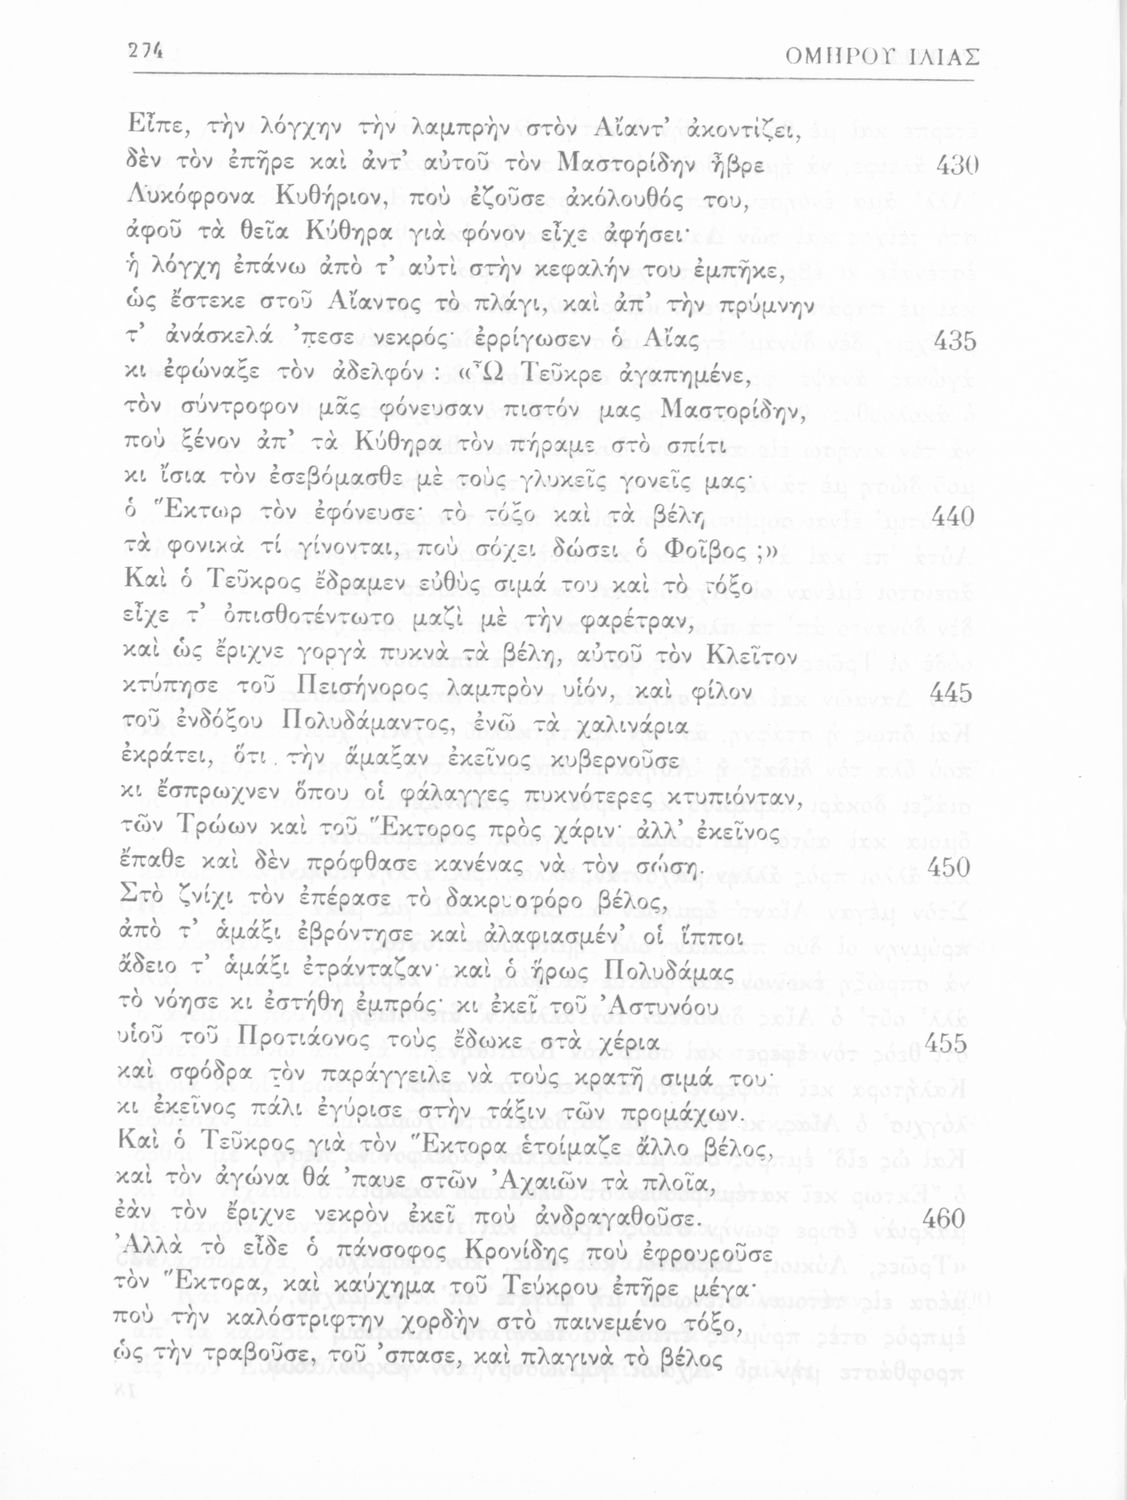 274 ΟΜΗΡΟΥ ΙΛΙΑΣ
Εἶπε, τὴν λόγχην τὴν λαμπρὴν στὸν Αἴαντ’ ἀκοντίζει,
δὲν τὸν ἐπῆρε καὶ ἀντ’ αὐτοῦ τὸν Μαστορίδην ἦβρε 430
Λυκόφρονα Κυθήριον, ποὺ ἐζοῦσε ἀκόλουθός του,
ἀφοῦ τὰ θεῖα Κύθηρα γιὰ φόνον εἶχε ἀφήσει·
ἡ λόγχη ἐπάνω ἀπὸ τ’ αὐτὶ στὴν κεφαλήν του ἐμπῆκε,
ὡς ἔστεκε στοῦ Αἴαντος τὸ πλάγι, καὶ ἀπ’ τὴν πρύμνην
τ’ ἀνάσκελά ’πεσε νεκρός· ἐρρίγωσεν ὁ Αἴας 435
κι ἐφώναξε τὸν ἀδελφόν : «Ὦ Τεῦκρε ἀγαπημένε,
τὸν σύντροφον μᾶς φόνευσαν πιστόν μας Μαστορίδην,
ποὺ ξένον ἀπ’ τὰ Κύθηρα τὸν πήραμε στὸ σπίτι
κι ἴσια τὸν ἐσεβόμασθε μὲ τοὺς γλυκεῖς γονεῖς μας·
ὁ Ἕκτωρ τὸν ἐφόνευσε· τὸ τόξο καὶ τὰ βέλη 440
τὰ φονικὰ τί γίνονται, ποὺ σόχει δώσει ὁ Φοῖβος ;»
Καὶ ὁ Τεῦκρος ἔδραμεν εὐθὺς σιμά του καὶ τὸ τόξο
εἶχε τ’ ὀπισθοτέντωτο μαζὶ μὲ τὴν φαρέτραν,
καὶ ὡς ἔριχνε γοργὰ πυκνὰ τὰ βέλη, αὐτοῦ τὸν Κλεῖτον
κτύπησε τοῦ Πεισήνορος λαμπρὸν υἱόν, καὶ φίλον 445
τοῦ ἐνδόξου Πολυδάμαντος, ἐνῶ τὰ χαλινάρια
ἐκράτει, ὅτι τὴν ἅμαξαν ἐκεῖνος κυβερνοῦσε
κι ἔσπρωχνεν ὅπου οἱ φάλαγγες πυκνότερες κτυπιόνταν,
τῶν Τρώων καὶ τοῦ Ἕκτορος πρὸς χάριν· ἀλλ’ ἐκεῖνος
ἔπαθε καὶ δὲν πρόφθασε κανένας νὰ τὸν σώση. 450
Στὸ ζνίχι τὸν ἐπέρασε τὸ δακρυοφόρο βέλος,
ἀπὸ τ’ ἁμάξι ἐβρόντησε καὶ ἀλαφιασμέν’ οἱ ἵπποι
ἄδειο τ’ ἁμάξι ἐτράνταζαν· καὶ ὁ ἥρως Πολυδάμας
τὸ νόησε κι ἐστήθη ἐμπρός· κι ἐκεῖ τοῦ Ἀστυνόου
υἱοῦ τοῦ Προτιάονος τοὺς ἔδωκε στὰ χέρια 455
καὶ σφόδρα τὸν παράγγειλε νὰ τοὺς κρατῆ σιμά του·
κι ἐκεῖνος πάλι ἐγύρισε στὴν τάξιν τῶν προμάχων.
Καὶ ὁ Τεῦκρος γιὰ τὸν Ἕκτορα ἑτοίμαζε ἄλλο βέλος,
καὶ τὸν ἀγώνα θά ’παυε στῶν Ἀχαιῶν τὰ πλοῖα,
ἐὰν τὸν ἔριχνε νεκρὸν ἐκεῖ ποὺ ἀνδραγαθοῦσε. 460
Ἀλλὰ τὸ εἶδε ὁ πάνσοφος Κρονίδης ποὺ ἐφρουροῦσε
τὸν Ἕκτορα, καὶ καύχημα τοῦ Τεύκρου ἐπῆρε μέγα·
ποὺ τὴν καλόστριφτην χορδὴν στὸ παινεμένο τόξο,
ὡς τὴν τραβοῦσε, τοῦ ’σπασε, καὶ πλαγινὰ τὸ βέλος